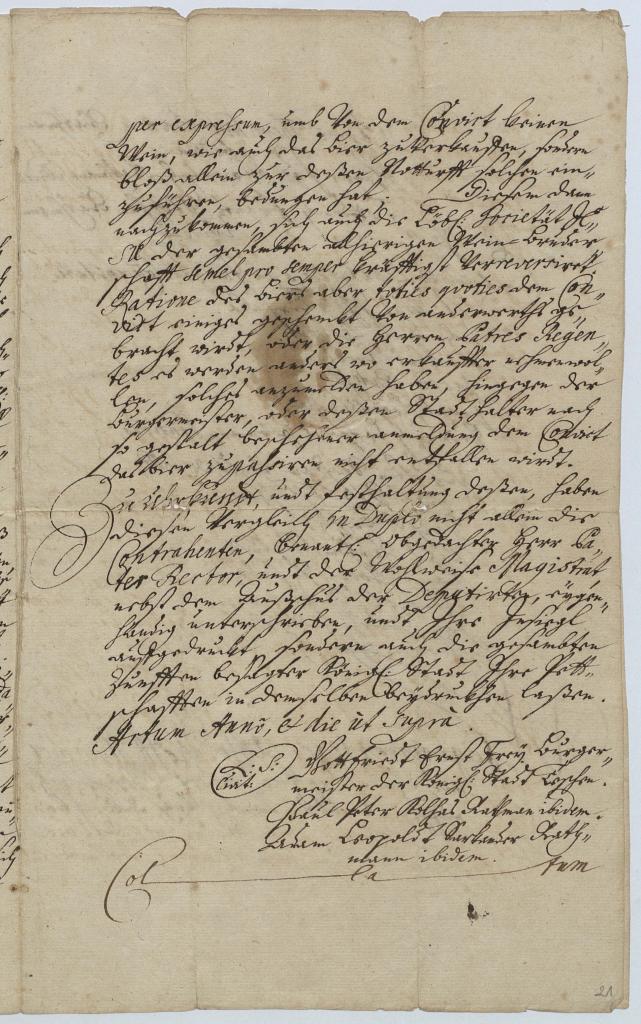 per expressum, umb von dem Convict keinen
Wein, wie auch das bier zuverkauffen, sondern
bloß allein zur deßen Notturfft solchen ein-
zuführen, bedungen hat. Diesem dann
nachzukommen, sich auch die Löbl: Societät
der gesambten allhierigen Wein-bruder
schafft semel pro semper kräfftigst verreversiret
Ratione des biers aber toties quoties dem Con-
vict einiges geschenkt von anderwerths ge-
bracht wirdt, oder die Herren Patres Regen-
tes es werden anders wo erkauffter nehmen wol-
len, solches anzumelden haben, hingegen der
Burgermeister, oder deßen Stadthalter nach
so gestalt beschehener anmeldung dem Convict
das bier zu passiren nicht entfallen wirdt.
Zu Uhrkundt, undt festhaltung deßen, haben
diesen Vergleich in Duplo nicht allein die
Contrahenten, benantl: Obgedachter Herr Pa-
ter Rector, undt der Wohlweise Magistrat
nebst dem Außschus der Deputirten, eygen-
händig unterschrieben, undt Ihre Insiegl
aufgedruckt, sondern auch die gesambten
Zunfften besagter Königl: Stadt Ihre Pett-
schafften in demselben beydruckhen laßen.
Actum Anno, & die ut Supra.
L: S: Gottfriedt Ernst Frey Burger-
Civit: meister der Königl: Stadt Teschen.
Paul Peter Kolhas Rathman ibidem.
Adam Leopoldt Sarkander Rath-
mann ibidem.
Col la tum
21